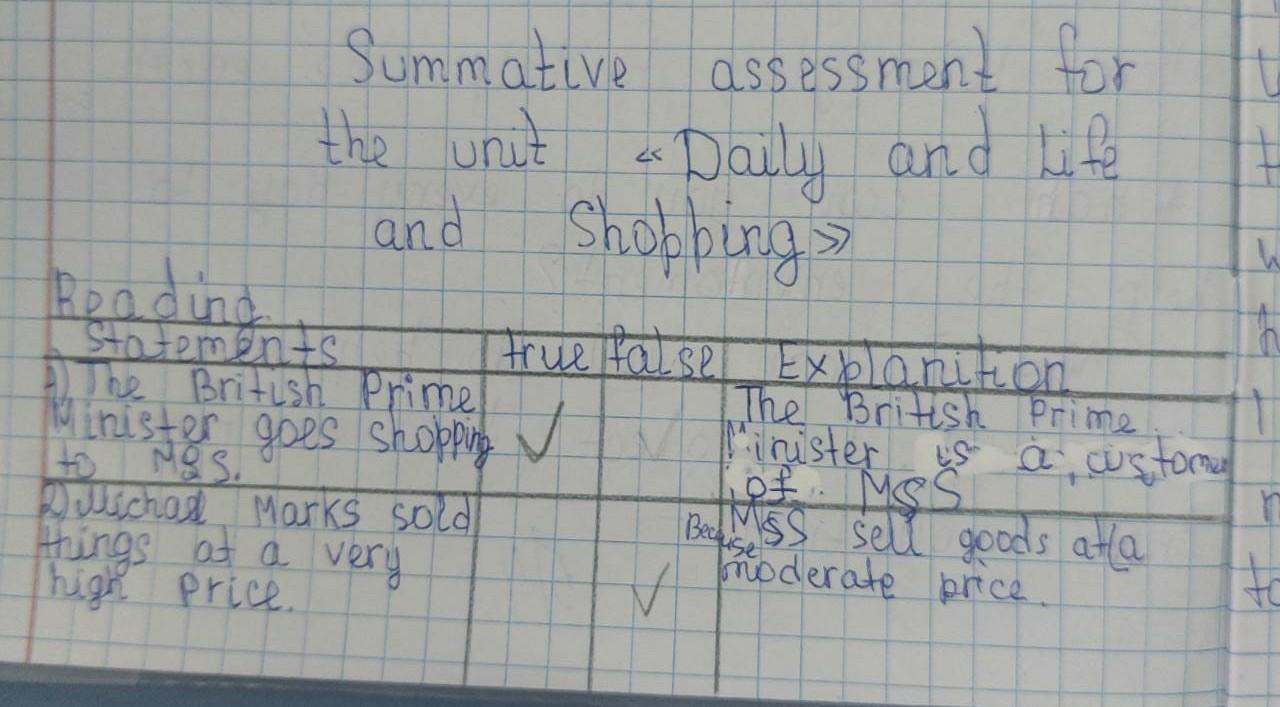 Summative assessment for
the unit «Daily and Life
and Shopping»
Reading.
Statements true false Explanition
1) The British Prime
Minister goes shopping
to M&S.
The British Prime
Minister is a customer
of M&S
2) Michael Marks sold
things at a very
high price.
Because M&S sell goods at a
moderate price.